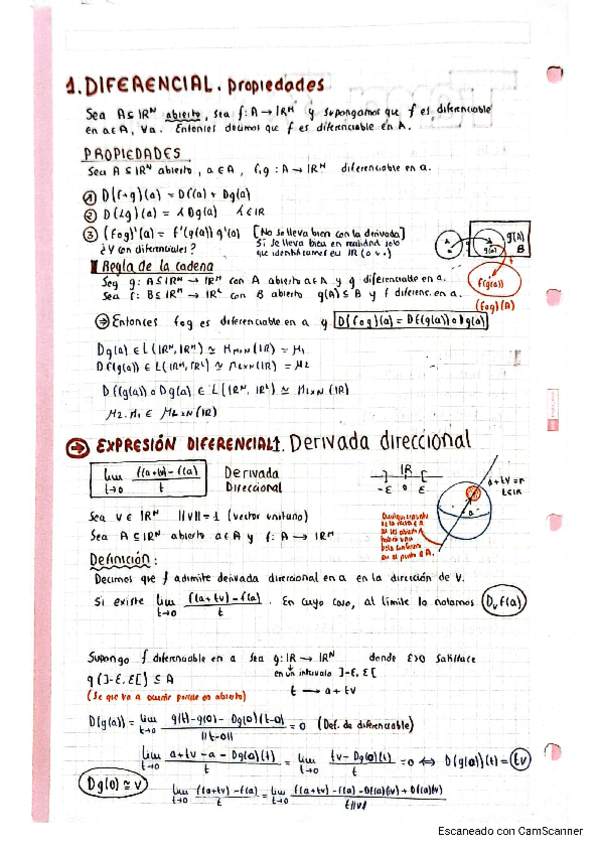 1. DIFERENCIAL. Propiedades
Sea A ⊆ IRᴺ abierto, sea f: A → IRᴹ y supongamos que f es diferenciable
en a ∈ A, ∀a. Entonces decimos que f es diferenciable en A.
PROPIEDADES
Sea A ⊆ IRᴺ abierto, a ∈ A, f,g : A → IRᴹ diferenciable en a.
① D(f+g)(a) = Df(a) + Dg(a)
② D(λg)(a) = λ Dg(a) λ ∈ IR
③ (fog)'(a) = f'(g(a)) g'(a) [No se lleva bien con la derivada]
¿Y con diferenciales? Si se lleva bien en realidad solo
que identificamos en IR
g(A)
B
g(a)
f(g(a))
(fog)(A)
Regla de la cadena
Sea g: A ⊆ IRᴺ → IRᴹ con A abierto a ∈ A y g diferenciable en a.
Sea f: B ⊆ IRᴹ → IRᴸ con B abierto g(A) ⊆ B y f diferenc. en a.
⇒ Entonces fog es diferenciable en a y D(fog)(a) = Df(g(a)) o Dg(a)
Dg(a) ∈ L(IRᴺ, IRᴹ) ≃ M_MxN(IR) = M₁
Df(g(a)) ∈ L(IRᴹ, IRᴸ) ≃ M_LxM(IR) = M₂
Df(g(a)) o Dg(a) ∈ L(IRᴺ, IRᴸ) ≃ M_LxN(IR)
M₂.M₁ ∈ M_LxN(IR)
⇒ EXPRESIÓN DIFERENCIAL 1. Derivada direccional
lim t→0 (f(a+tv) - f(a)) / t Derivada
Direccional
IR
-ε 0 ε
a+tv=r
t ∈ IR
a
Sea v ∈ IRᴺ ||v|| = 1 (vector unitario)
Sea A ⊆ IRᴺ abierto a ∈ A y f: A → IRᴹ
en el punto ∈ A.
Definición:
Decimos que f admite derivada direccional en a en la dirección de v.
Si existe lim t→0 (f(a+tv) - f(a)) / t. En cuyo caso, al límite lo notamos D_v f(a)
Supongo f diferenciable en a sea g: IR → IRᴺ donde ε>0 satisface
g(]-ε, ε[) ⊆ A en un intervalo ]-ε, ε[
(Se que va a ocurrir porque es abierto) t → a+tv
D(g(a)) = lim t→0 (g(t) - g(0) - Dg(0)(t-0)) / ||t-0|| = 0 (Def. de diferenciable)
lim t→0 (a+tv - a - Dg(0)(t)) / t = lim t→0 (tv - Dg(0)(t)) / t = 0 ⇔ D(g(0))(t) = tv
Dg(0) ≃ v
lim t→0 (f(a+tv) - f(a)) / t = lim t→0 (f(a+tv) - f(a) - Df(a)(tv) + Df(a)(tv)) / t||v||
Escaneado con CamScanner